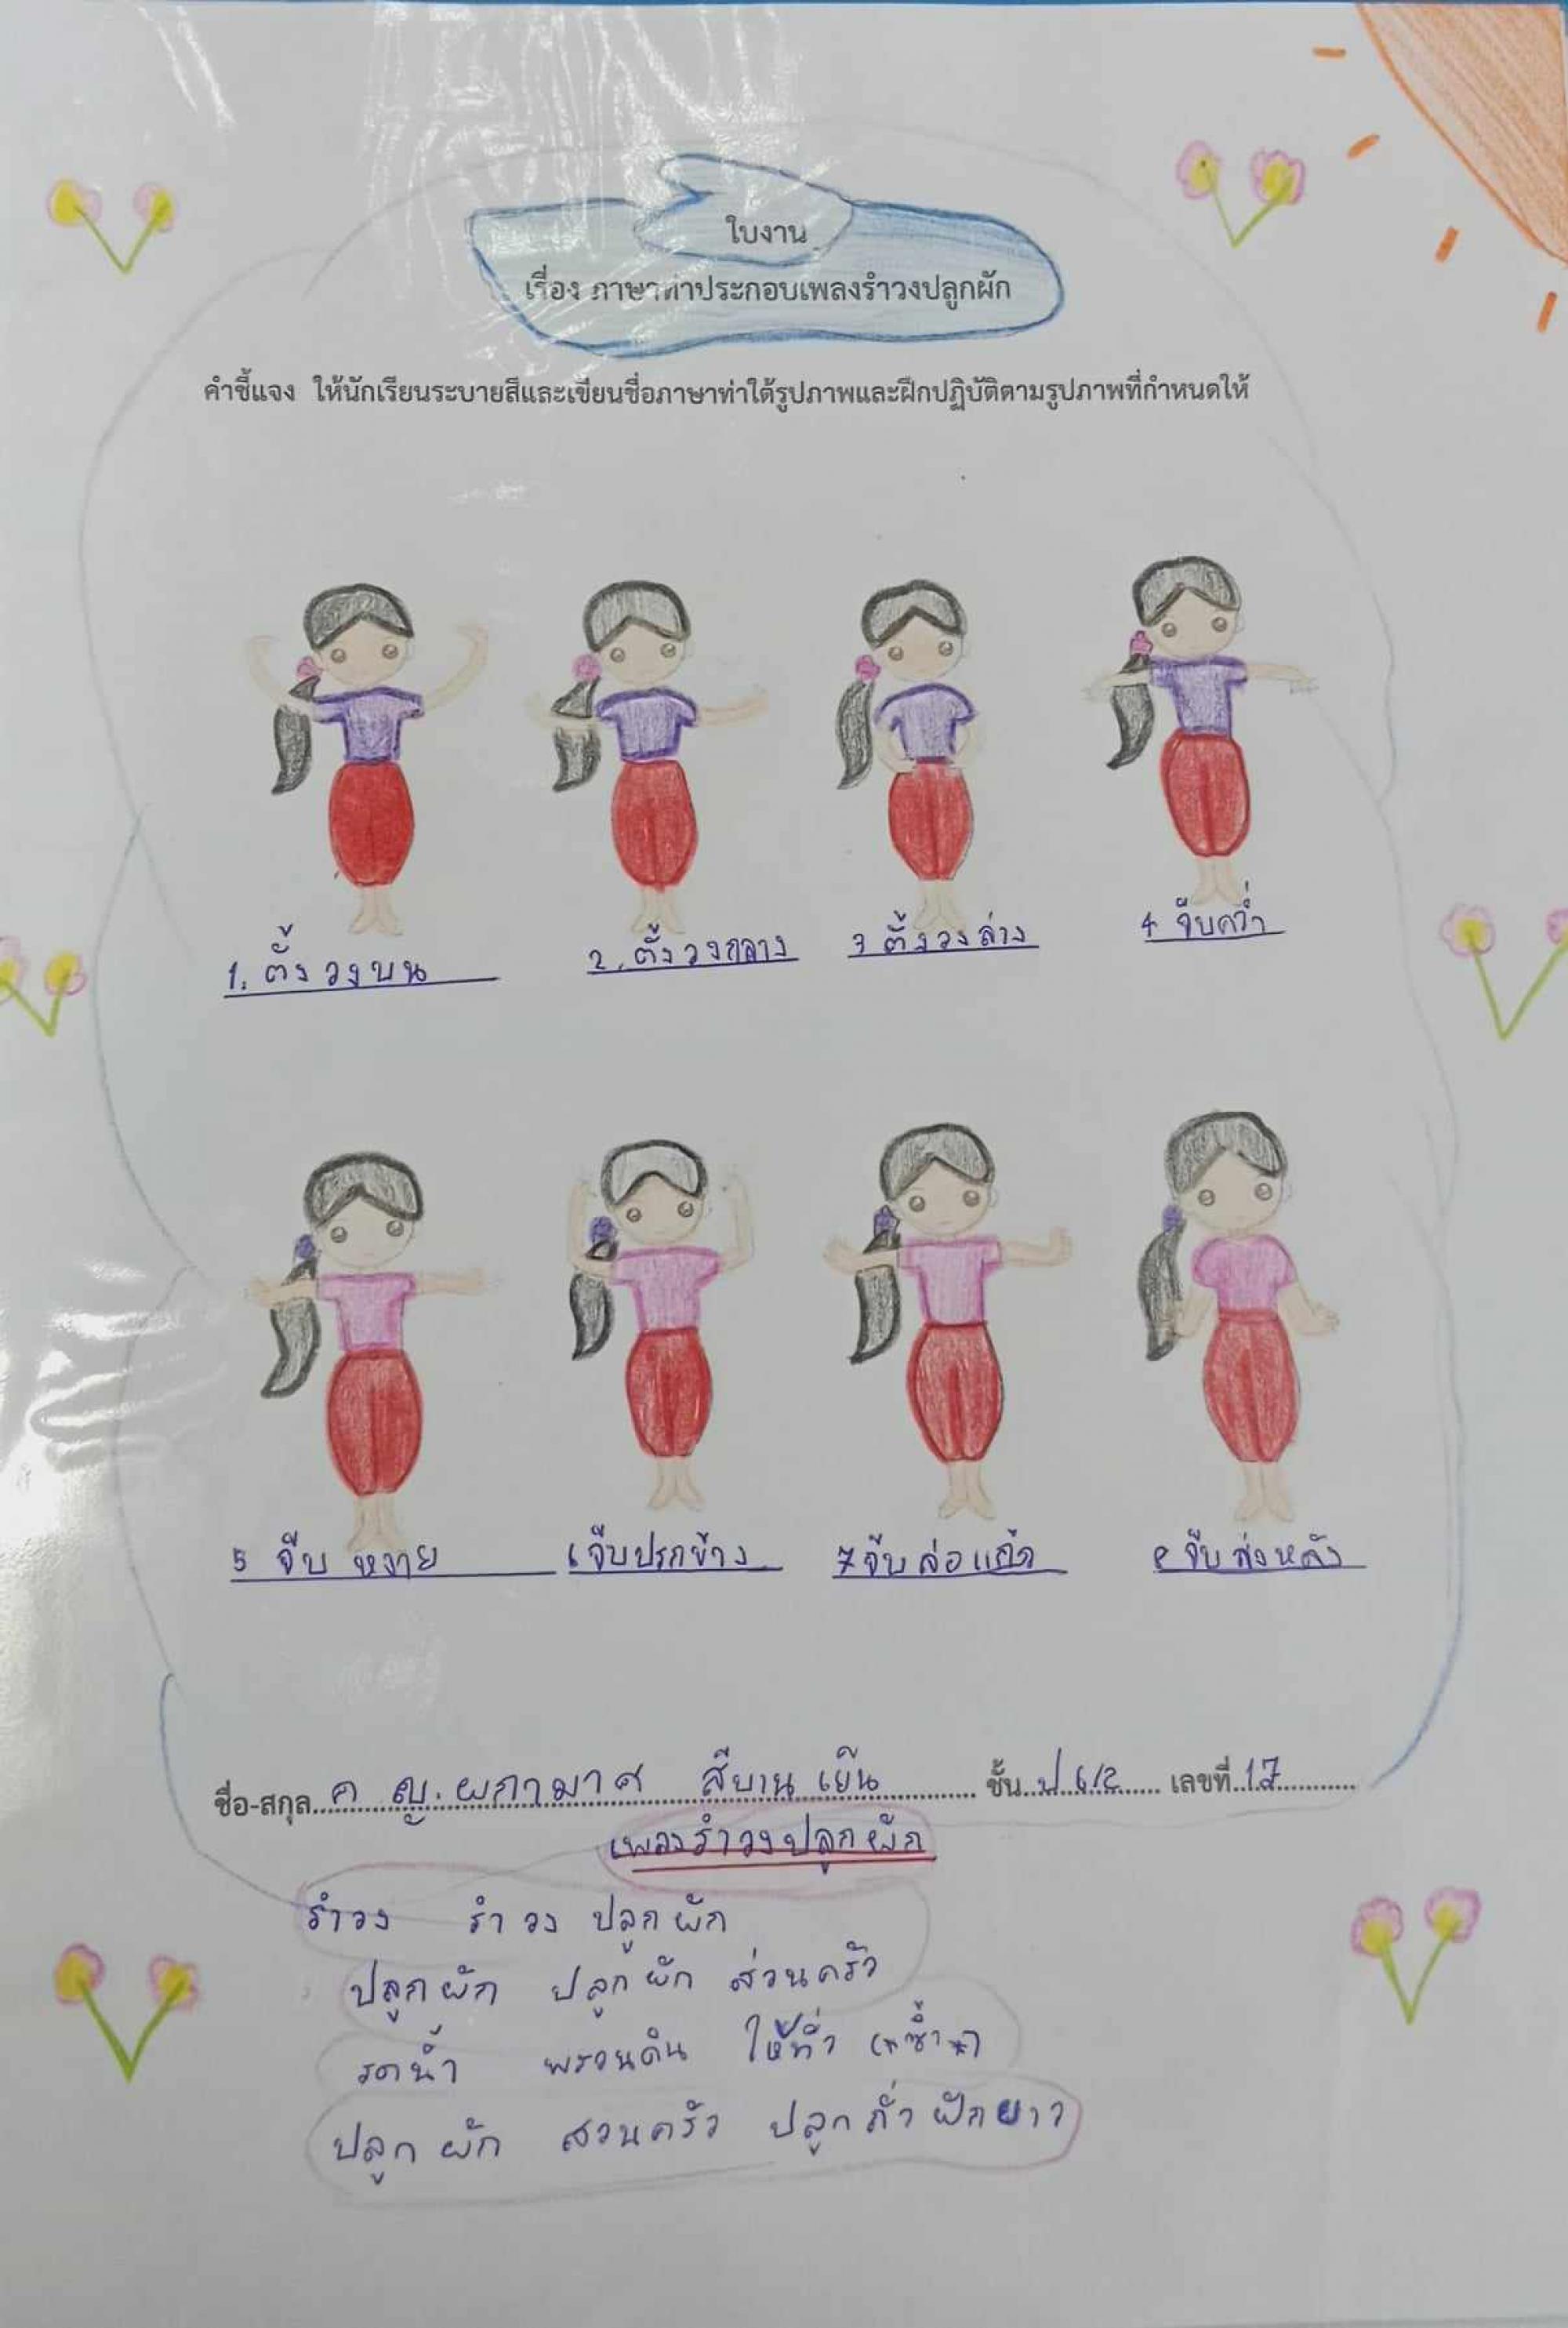 ใบงาน
เรื่อง ภาษาท่าประกอบเพลงรำวงปลูกผัก
คำชี้แจง ให้นักเรียนระบายสีและเขียนชื่อภาษาท่าใต้รูปภาพและฝึกปฏิบัติตามรูปภาพที่กำหนดให้
1. ตั้งวงบน 2. ตั้งวงกลาง 3 ตั้งวงล่าง 4 จีบคว่ำ
5 จีบ หงาย 6 จีบปรกข้าง 7 จีบล่อแก้ว 8 จีบส่งหลัง
ชื่อ-สกุล ด ญ. ผกามาศ สีบานเย็น ชั้น ป 6/2 เลขที่ 17
เพลงรำวงปลูกผัก
รำวง รำวง ปลูกผัก
ปลูกผัก ปลูกผัก ส่วนครัว
รดน้ำ พรวนดิน ให้ทั่ว (*ซ้ำ*)
ปลูกผัก สวนครัว ปลูกถั่วฝักยาว